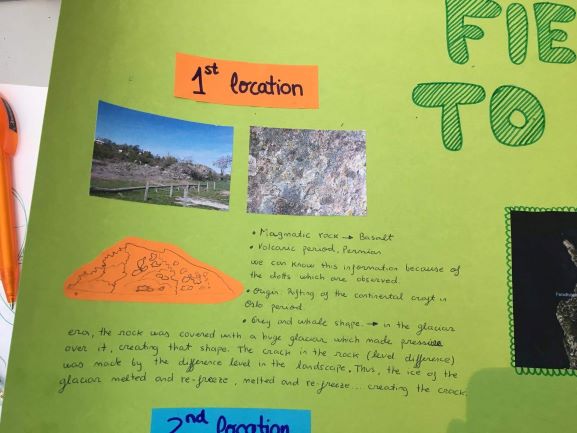 FIE
TO
1st location
• Magmatic rock → Basalt
• Volcanic period, Permian
we can know this information because of
the dotts which are observed.
• Origin: Rifting of the continental crust in
Oslo period
• Grey and whale shape. → in the glaciar
era, the rock was covered with a huge glaciar, which made pressure
over it, creating that shape. The crack in the rock (level difference)
was made by the difference level in the landscape. Thus, the ice of the
glaciar melted and re-freeze, melted and re-freeze... creating the crack.
2nd location